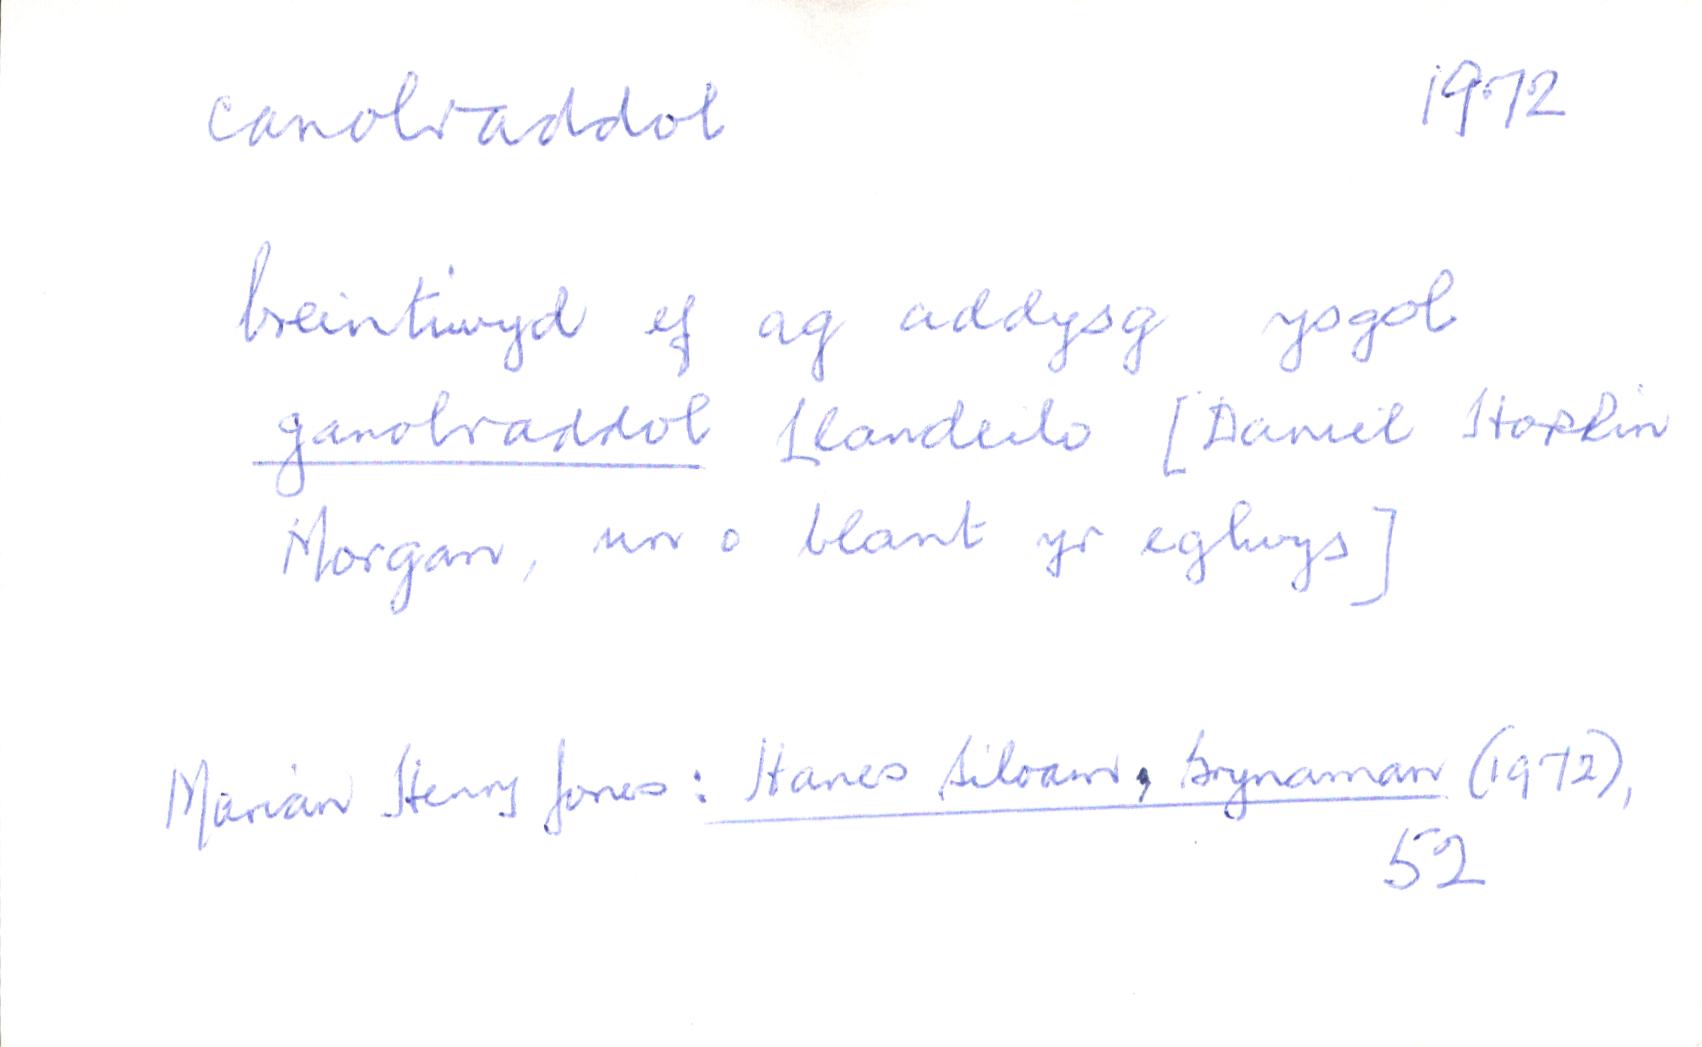 canolraddol 1972
breintiwyd ef ag addysg ysgol
ganolraddol Llandeilo [Daniel Hopkin
Morgan, un o blant yr eglwys]
Marian Henry Jones: Hanes Siloam, Brynaman (1972),
52